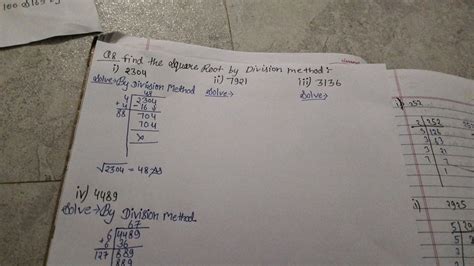 Q8. find the square Root by Division method:-
i) 2304 ii) 7921 iii) 3136
Solve→ By Division Method Solve→ Solve→
48
4 2304
+4 -16↓
88 704
704
x
√2304 = 48 Ans
iv) 4489
Solve→ By Division Method
67
6 4489
+6 36
127 889
889
i) 252
2 252
2 126
3 63
3 21
7 7
1
ii) 2925
5 2925